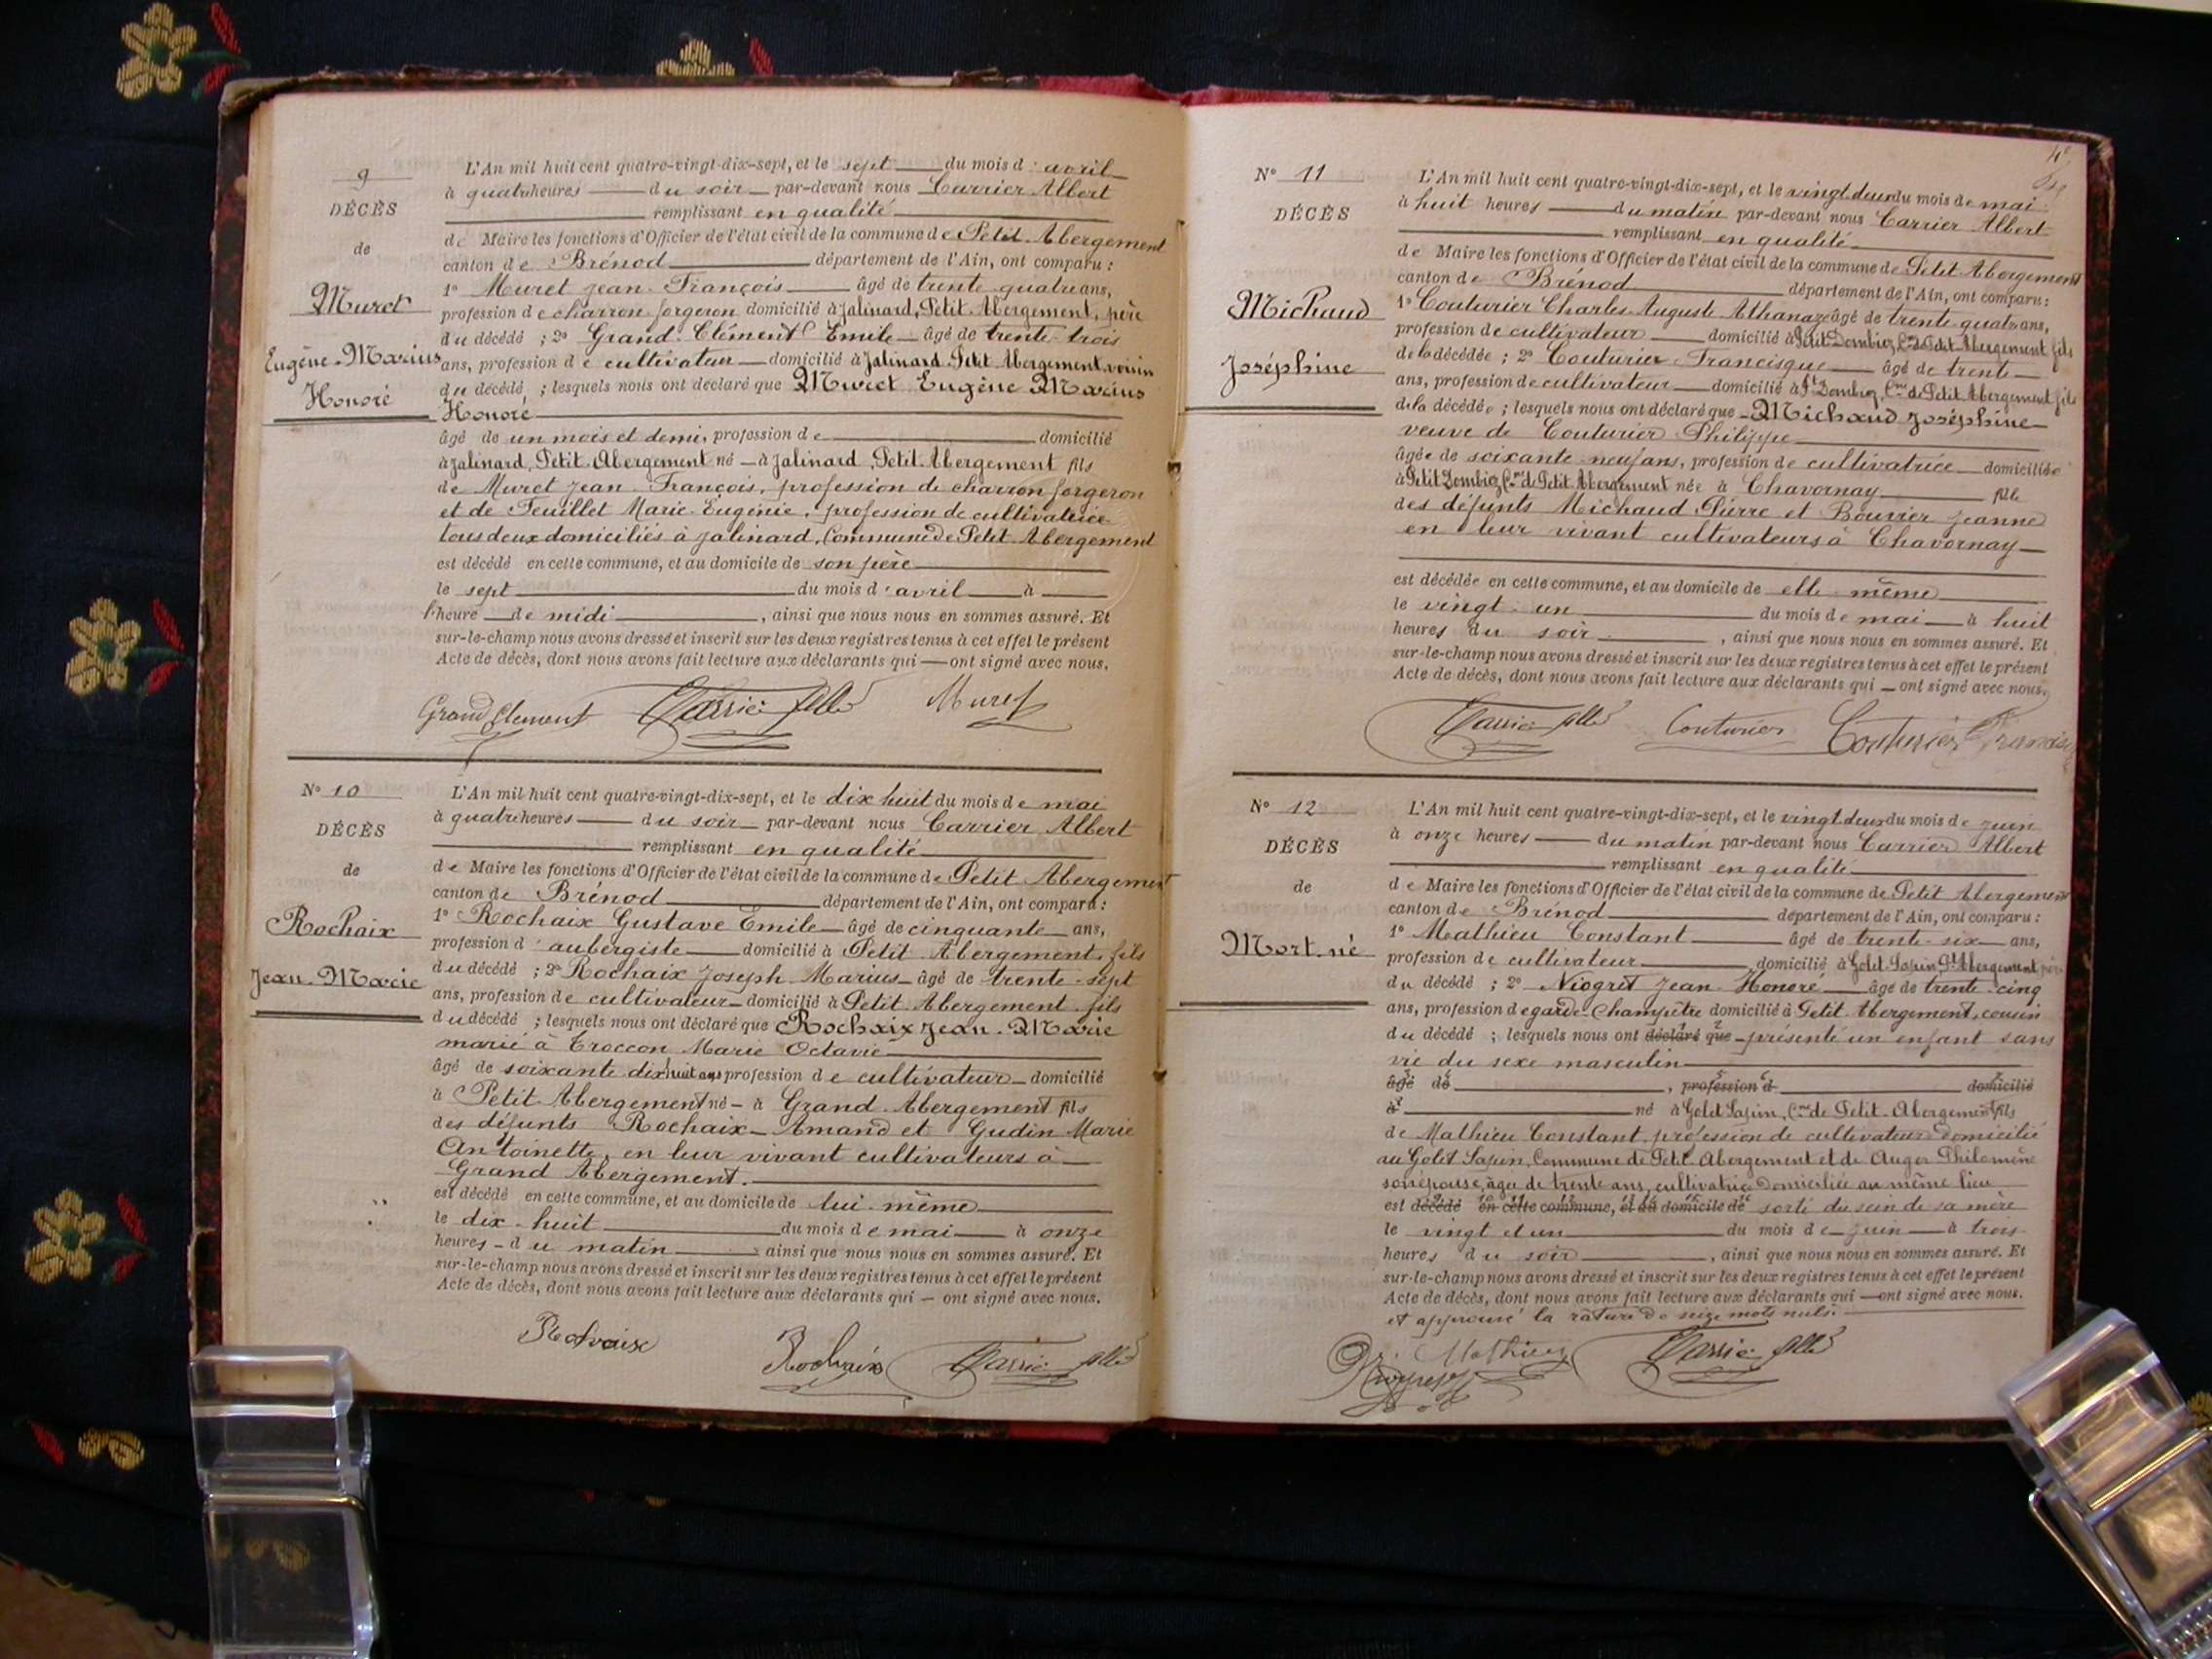 9
DÉCÈS
de
Muret
Eugène-Marius
Honoré
L'An mil huit cent quatre-vingt-dix-sept, et le sept du mois d'avril
à quatre heures du soir par-devant nous Carrier Albert
remplissant en qualité
de Maire les fonctions d'Officier de l'état civil de la commune de Petit-Abergement
canton de Brénod département de l'Ain, ont comparu :
1° Muret Jean-François âgé de trente-quatre ans,
profession de charron forgeron domicilié à Jalinard, Petit-Abergement, père
du décédé ; 2° Grand-Clément Emile âgé de trente-trois
ans, profession de cultivateur domicilié à Jalinard Petit Abergement, voisin
du décédé, ; lesquels nous ont déclaré que Muret Eugène Marius
Honoré
âgé de un mois et demi, profession de domicilié
à Jalinard, Petit-Abergement né à Jalinard, Petit-Abergement fils
de Muret Jean-François, profession de charron forgeron
et de Feuillet Marie-Eugénie, profession de cultivatrice
tous deux domiciliés à Jalinard, Commune de Petit-Abergement
est décédé en cette commune, et au domicile de son père
le sept du mois d'avril à
l'heure de midi, ainsi que nous nous en sommes assuré. Et
sur-le-champ nous avons dressé et inscrit sur les deux registres tenus à cet effet le présent
Acte de décès, dont nous avons fait lecture aux déclarants qui ont signé avec nous.
Grand Clement Carrier Albt Muret
N° 10
DÉCÈS
de
Rochaix
Jean-Marie
L'An mil huit cent quatre-vingt-dix-sept, et le dix huit du mois de mai
à quatre heures du soir par-devant nous Carrier Albert
remplissant en qualité
de Maire les fonctions d'Officier de l'état civil de la commune de Petit Abergement
canton de Brénod département de l'Ain, ont comparu :
1° Rochaix Gustave Emile âgé de cinquante ans,
profession d'aubergiste domicilié à Petit Abergement, fils
du décédé ; 2° Rochaix Joseph Marius âgé de trente-sept
ans, profession de cultivateur domicilié à Petit-Abergement fils
du décédé ; lesquels nous ont déclaré que Rochaix Jean-Marie
marié à Troccon Marie Octavie
âgé de soixante dix huit ans profession de cultivateur domicilié
à Petit-Abergement né à Grand-Abergement fils
des défunts Rochaix Amand et Gudin Marie
Antoinette, en leur vivant cultivateurs à
Grand Abergement.
est décédé en cette commune, et au domicile de lui même
le dix-huit du mois de mai à onze
heures du matin ainsi que nous nous en sommes assuré. Et
sur-le-champ nous avons dressé et inscrit sur les deux registres tenus à cet effet le présent
Acte de décès, dont nous avons fait lecture aux déclarants qui ont signé avec nous.
Rochaix Rochaix Carrier Albt
N° 11
DÉCÈS
Michaud
Joséphine
L'An mil huit cent quatre-vingt-dix-sept, et le vingt deux du mois de mai
à huit heures du matin par-devant nous Carrier Albert
remplissant en qualité
de Maire les fonctions d'Officier de l'état civil de la commune de Petit-Abergement
canton de Brénod département de l'Ain, ont comparu :
1° Couturier Charles Auguste Athanaze âgé de trente-quatre ans,
profession de cultivateur domicilié à Petit Dombiez, Cne de Petit Abergement fils
de la décédée ; 2° Couturier Francisque âgé de trente
ans, profession de cultivateur domicilié à Pt Dombiez, Cne de Petit Abergement fils
de la décédée ; lesquels nous ont déclaré que Michaud Joséphine
veuve de Couturier Philippe
âgée de soixante-neuf ans, profession de cultivatrice domiciliée
à Petit Dombiez Cne de Petit Abergement née à Chavornay fille
des défunts Michaud Pierre et Bouvier Jeanne
en leur vivant cultivateurs à Chavornay
est décédée en cette commune, et au domicile de elle-même
le vingt-un du mois de mai à huit
heures du soir, ainsi que nous nous en sommes assuré. Et
sur-le-champ nous avons dressé et inscrit sur les deux registres tenus à cet effet le présent
Acte de décès, dont nous avons fait lecture aux déclarants qui ont signé avec nous.
Carrier Albt Couturier Couturier
N° 12
DÉCÈS
de
Mort-né
L'An mil huit cent quatre-vingt-dix-sept, et le vingt deux du mois de juin
à onze heures du matin par-devant nous Carrier Albert
remplissant en qualité
de Maire les fonctions d'Officier de l'état civil de la commune de Petit Abergement
canton de Brénod département de l'Ain, ont comparu :
1° Mathieu Constant âgé de trente-six ans,
profession de cultivateur domicilié à Golet-Sapin, Pt Abergement père
du décédé ; 2° Niogret Jean-Honoré âgé de trente-cinq
ans, profession de garde-champêtre domicilié à Petit-Abergement, cousin
du décédé ; lesquels nous ont déclaré que présenté un enfant sans
vie du sexe masculin
âgé de, profession d domicilié
à né à Golet Sapin, Cne de Petit-Abergement fils
de Mathieu Constant, profession de cultivateur domicilié
au Golet Sapin, Commune de Petit Abergement et de Auger Philomène
son épouse, âgée de trente ans, cultivatrice domiciliée au même lieu
est décédé en cette commune, et au domicile de sorti du sein de sa mère
le vingt et un du mois de juin à trois
heures du soir, ainsi que nous nous en sommes assuré. Et
sur-le-champ nous avons dressé et inscrit sur les deux registres tenus à cet effet le présent
Acte de décès, dont nous avons fait lecture aux déclarants qui ont signé avec nous.
et approuvé la rature de seize mots nuls.
Mathieu Carrier Albt